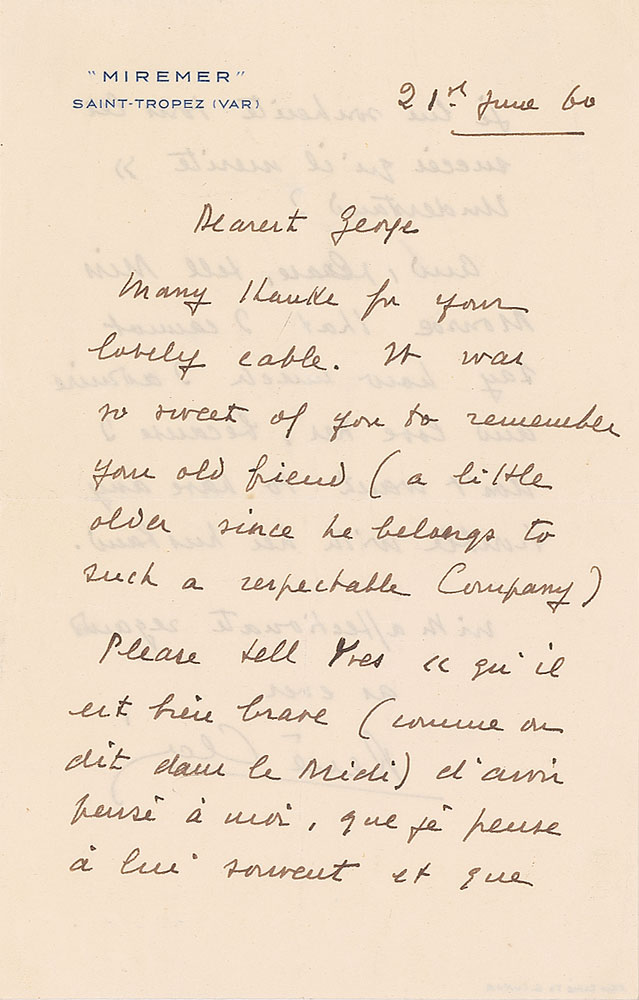 "MIREMER"
SAINT-TROPEZ (VAR)
21st June 60
Dearest George
Many thanks for your
lovely cable. It was
so sweet of you to remember
your old friend (a little
older since he belongs to
such a respectable Company)
Please tell Yves « qu'il
est bien brave (comme on
dit dans le Midi) d'avoir
pensé à moi, que je pense
à lui souvent et que